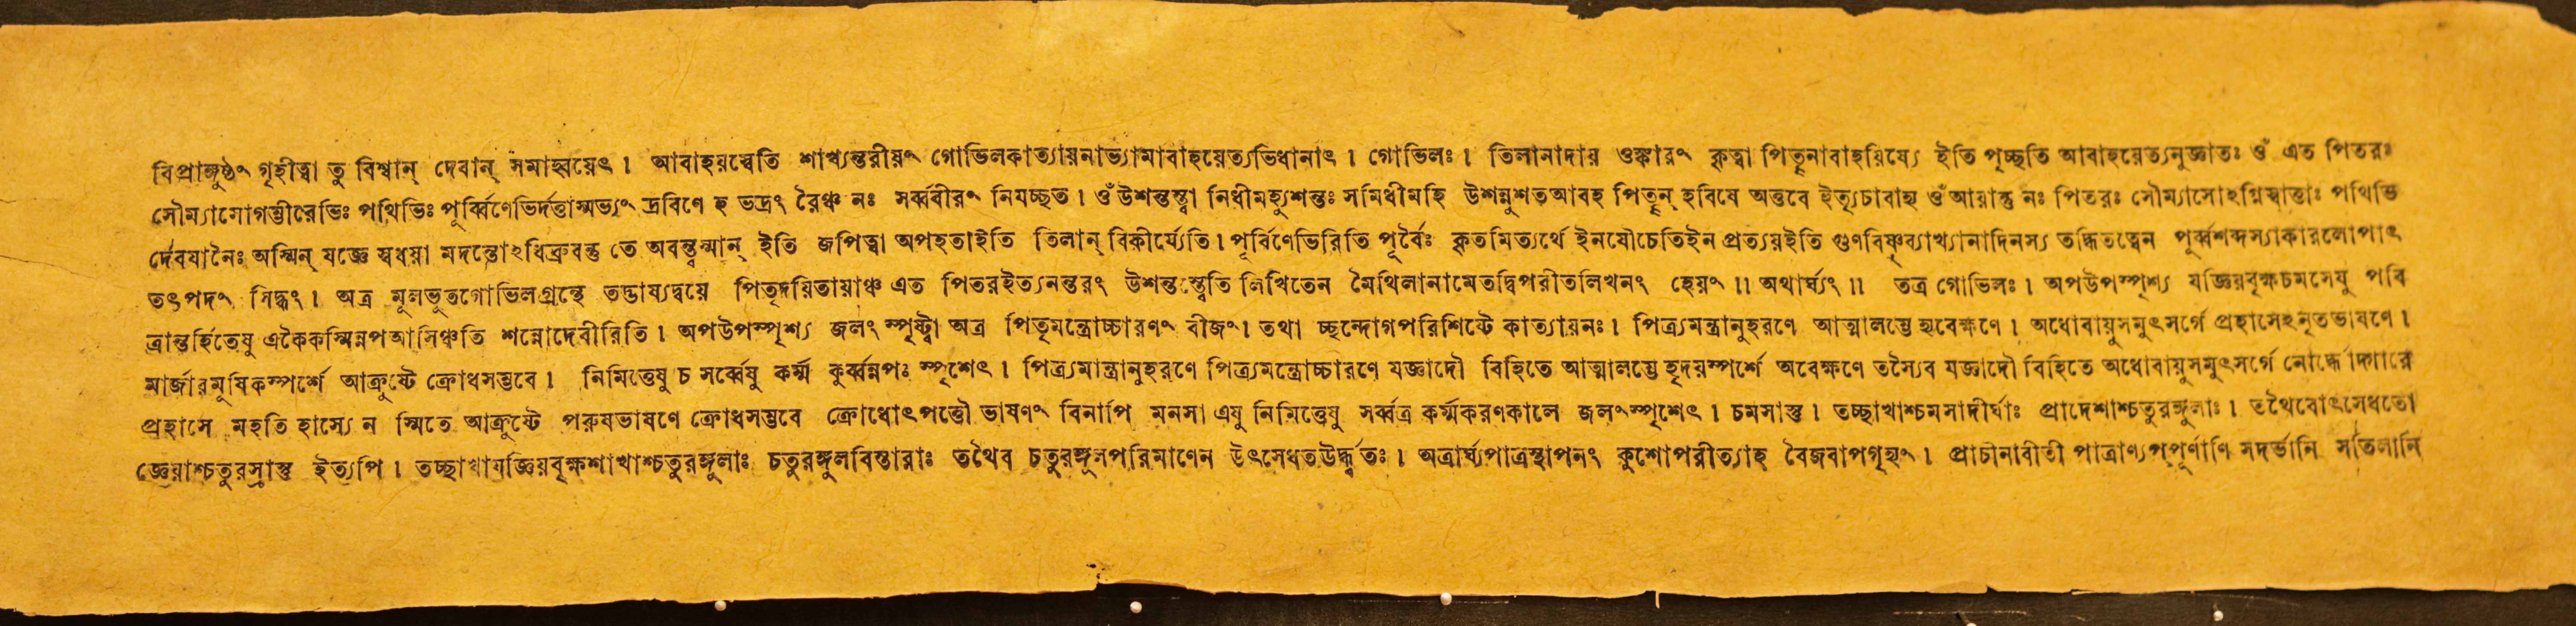 বিপ্রাঙ্গুষ্ঠং গৃহীত্বা তু বিশ্বান্ দেবান্ সমাহ্বয়েৎ। আবাহয়স্বেতি শাখ্যন্তরীয়ং গোভিলকাত্যায়নাভ্যামাবাহয়েত্যভিধানাৎ। গোভিলঃ। তিলানাদায় ওঙ্কারং কৃত্বা পিতৄনাবাহয়িষ্যে ইতি পৃচ্ছতি আবাহয়েত্যনুজ্ঞাতঃ ওঁ এত পিতরঃ
সৌম্যাসোগম্ভীরেভিঃ পথিভিঃ পূর্ব্বিণেভির্দত্তাস্মভ্যং দ্রবিণে হ ভদ্রং রৈঞ্চ নঃ সর্ব্ববীরং নিযচ্ছত। ওঁ উশন্তস্ত্বা নিধীমহ্যুশন্তঃ সমিধীমহি উশন্নুশতআবহ পিতৄন্ হবিষে অত্তবে ইত্যৃচাবাহ্য ওঁ আয়ান্তু নঃ পিতরঃ সৌম্যাসোঽগ্নিস্বাত্তাঃ পথিভি
র্দেবযানৈঃ অস্মিন্ যজ্ঞে স্বধয়া মদন্তোঽধিব্রুবন্তু তে অবন্ত্বস্মান্ ইতি জপিত্বা অপহতাইতি তিলান্ বিকীর্য্যেতি। পূর্বিণেভিরিতি পূর্বৈঃ কৃতমিত্যর্থে ইনযৌচেতিইন প্রত্যয়ইতি গুণবিষ্ণুব্যাখ্যানাদিনস্য তদ্ধিতত্বেন পূর্ব্বশব্দস্যাকারলোপাৎ
তৎপদং সিদ্ধং। অত্র মূলভূতগোভিলগ্রন্থে তদ্ভাষ্যদ্বয়ে পিতৃদয়িতায়াঞ্চ এত পিতরইত্যনন্তরং উশন্তস্ত্বেতি লিখিতেন মৈথিলানামেতদ্বিপরীতলিখনং হেয়ং॥ অথার্ঘ্যং॥ তত্র গোভিলঃ। অপউপস্পৃশ্য যজ্ঞিয়বৃক্ষচমসেষু পবি
ত্রান্তর্হিতেষু একৈকস্মিন্নপআসিঞ্চতি শন্নোদেবীরিতি। অপউপস্পৃশ্য জলং স্পৃষ্ট্বা অত্র পিতৃমন্ত্রোচ্চারণং বীজং। তথা চ্ছন্দোগপরিশিষ্টে কাত্যায়নঃ। পিত্র্যমন্ত্রানুহরণে আত্মালম্ভে হ্যবেক্ষণে। অধোবায়ুসমুৎসর্গে প্রহাসেঽনৃতভাষণে।
মার্জারমূষিকস্পর্শে আক্রুষ্টে ক্রোধসম্ভবে। নিমিত্তেষু চ সর্ব্বেষু কর্ম্ম কুর্ব্বন্নপঃ স্পৃশেৎ। পিত্র্যমান্ত্রানুহরণে পিত্র্যমন্ত্রোচ্চারণে যজ্ঞাদৌ বিহিতে আত্মালম্ভে হৃদয়স্পর্শে অবেক্ষণে তস্যৈব যজ্ঞাদৌ বিহিতে অধোবায়ুসমুৎসর্গে নোর্দ্ধোদ্গারে
প্রহাসে মহতি হাস্যে ন স্মিতে আক্রুষ্টে পরুষভাষণে ক্রোধসম্ভবে ক্রোধোৎপত্তৌ ভাষণং বিনাপি মনসা এষু নিমিত্তেষু সর্ব্বত্র কর্ম্মকরণকালে জলংস্পৃশেৎ। চমসাস্তু। তচ্ছাখাশ্চমসাদীর্ঘাঃ প্রাদেশাশ্চতুরঙ্গুলাঃ। তথৈবোৎসেধতো
জ্ঞেয়াশ্চতুরস্রাস্তু ইত্যপি। তচ্ছাখাযজ্ঞিয়বৃক্ষশাখাশ্চতুরঙ্গুলাঃ চতুরঙ্গুলবিস্তারাঃ তথৈব চতুরঙ্গুলপরিমাণেন উৎসেধতউর্দ্ধ্বতঃ। অত্রার্ঘ্যপাত্রস্থাপনং কুশোপরীত্যাহ বৈজবাপগৃহ্যং। প্রাচীনাবীতী পাত্রাণ্যপ্পূর্ণাণি সদর্ভানি সতিলানি